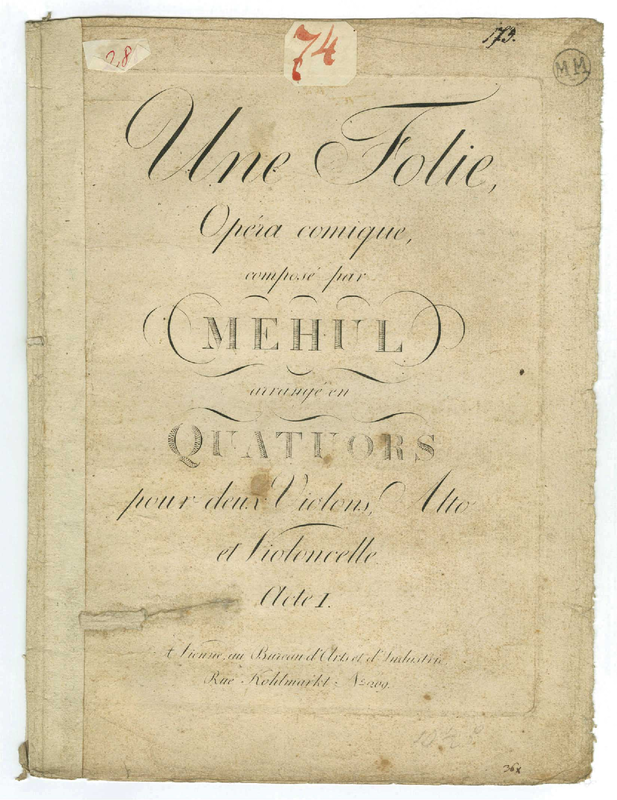 0,8
74
173.
MM
Une Folie,
Opéra comique,
composé par
MEHUL
arrangé en
QUATUORS
pour deux Violons, Alto
et Violoncelle
Acte I.
A Vienne, au Bureau d'Arts et d'Industrie
Rue Kohlmarkt